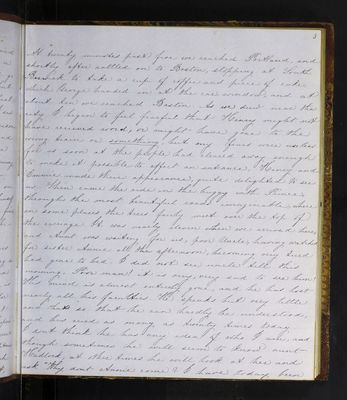 3
At twenty minutes past five we reached Portland, and
shortly after rattled on to Boston, stopping at South
Berwick to take a cup of coffee and piece of cake
which George handed in at the car window, and at
about ten we reached Boston. As we drew near the
city I began to feel fearful that Henry might not
have received word, or might have gone to the
wrong depot or something, but my fears were useless
for as soon as the people had cleared away enough
to make it possible to effect an entrance, Henry and
made their appearance, quite delighted to see
us. Then came the ride in the buggy with Prince,
through the most beautiful lanes imaginable, where
in some places the trees fairly meet over the top of
the carriage. It was nearly eleven when we arrived here,
Aunt was waiting for us, poor Uncle, having watched
for sister Annie all the afternoon, becoming very tired
had gone to bed. I did not see uncle till this
morning. Poor man! it is very, very sad to see him!
His mind is almost entirely gone, and he has lost
nearly all his faculties. He speaks but very little
and that so that he can hardly be understood,
and has cried as many as twenty times today.
I dont think he has any idea of who I am, and
though sometimes he will seem to know aunt
at other times he will look at her and
ask "Why dont Annie come? I have today been